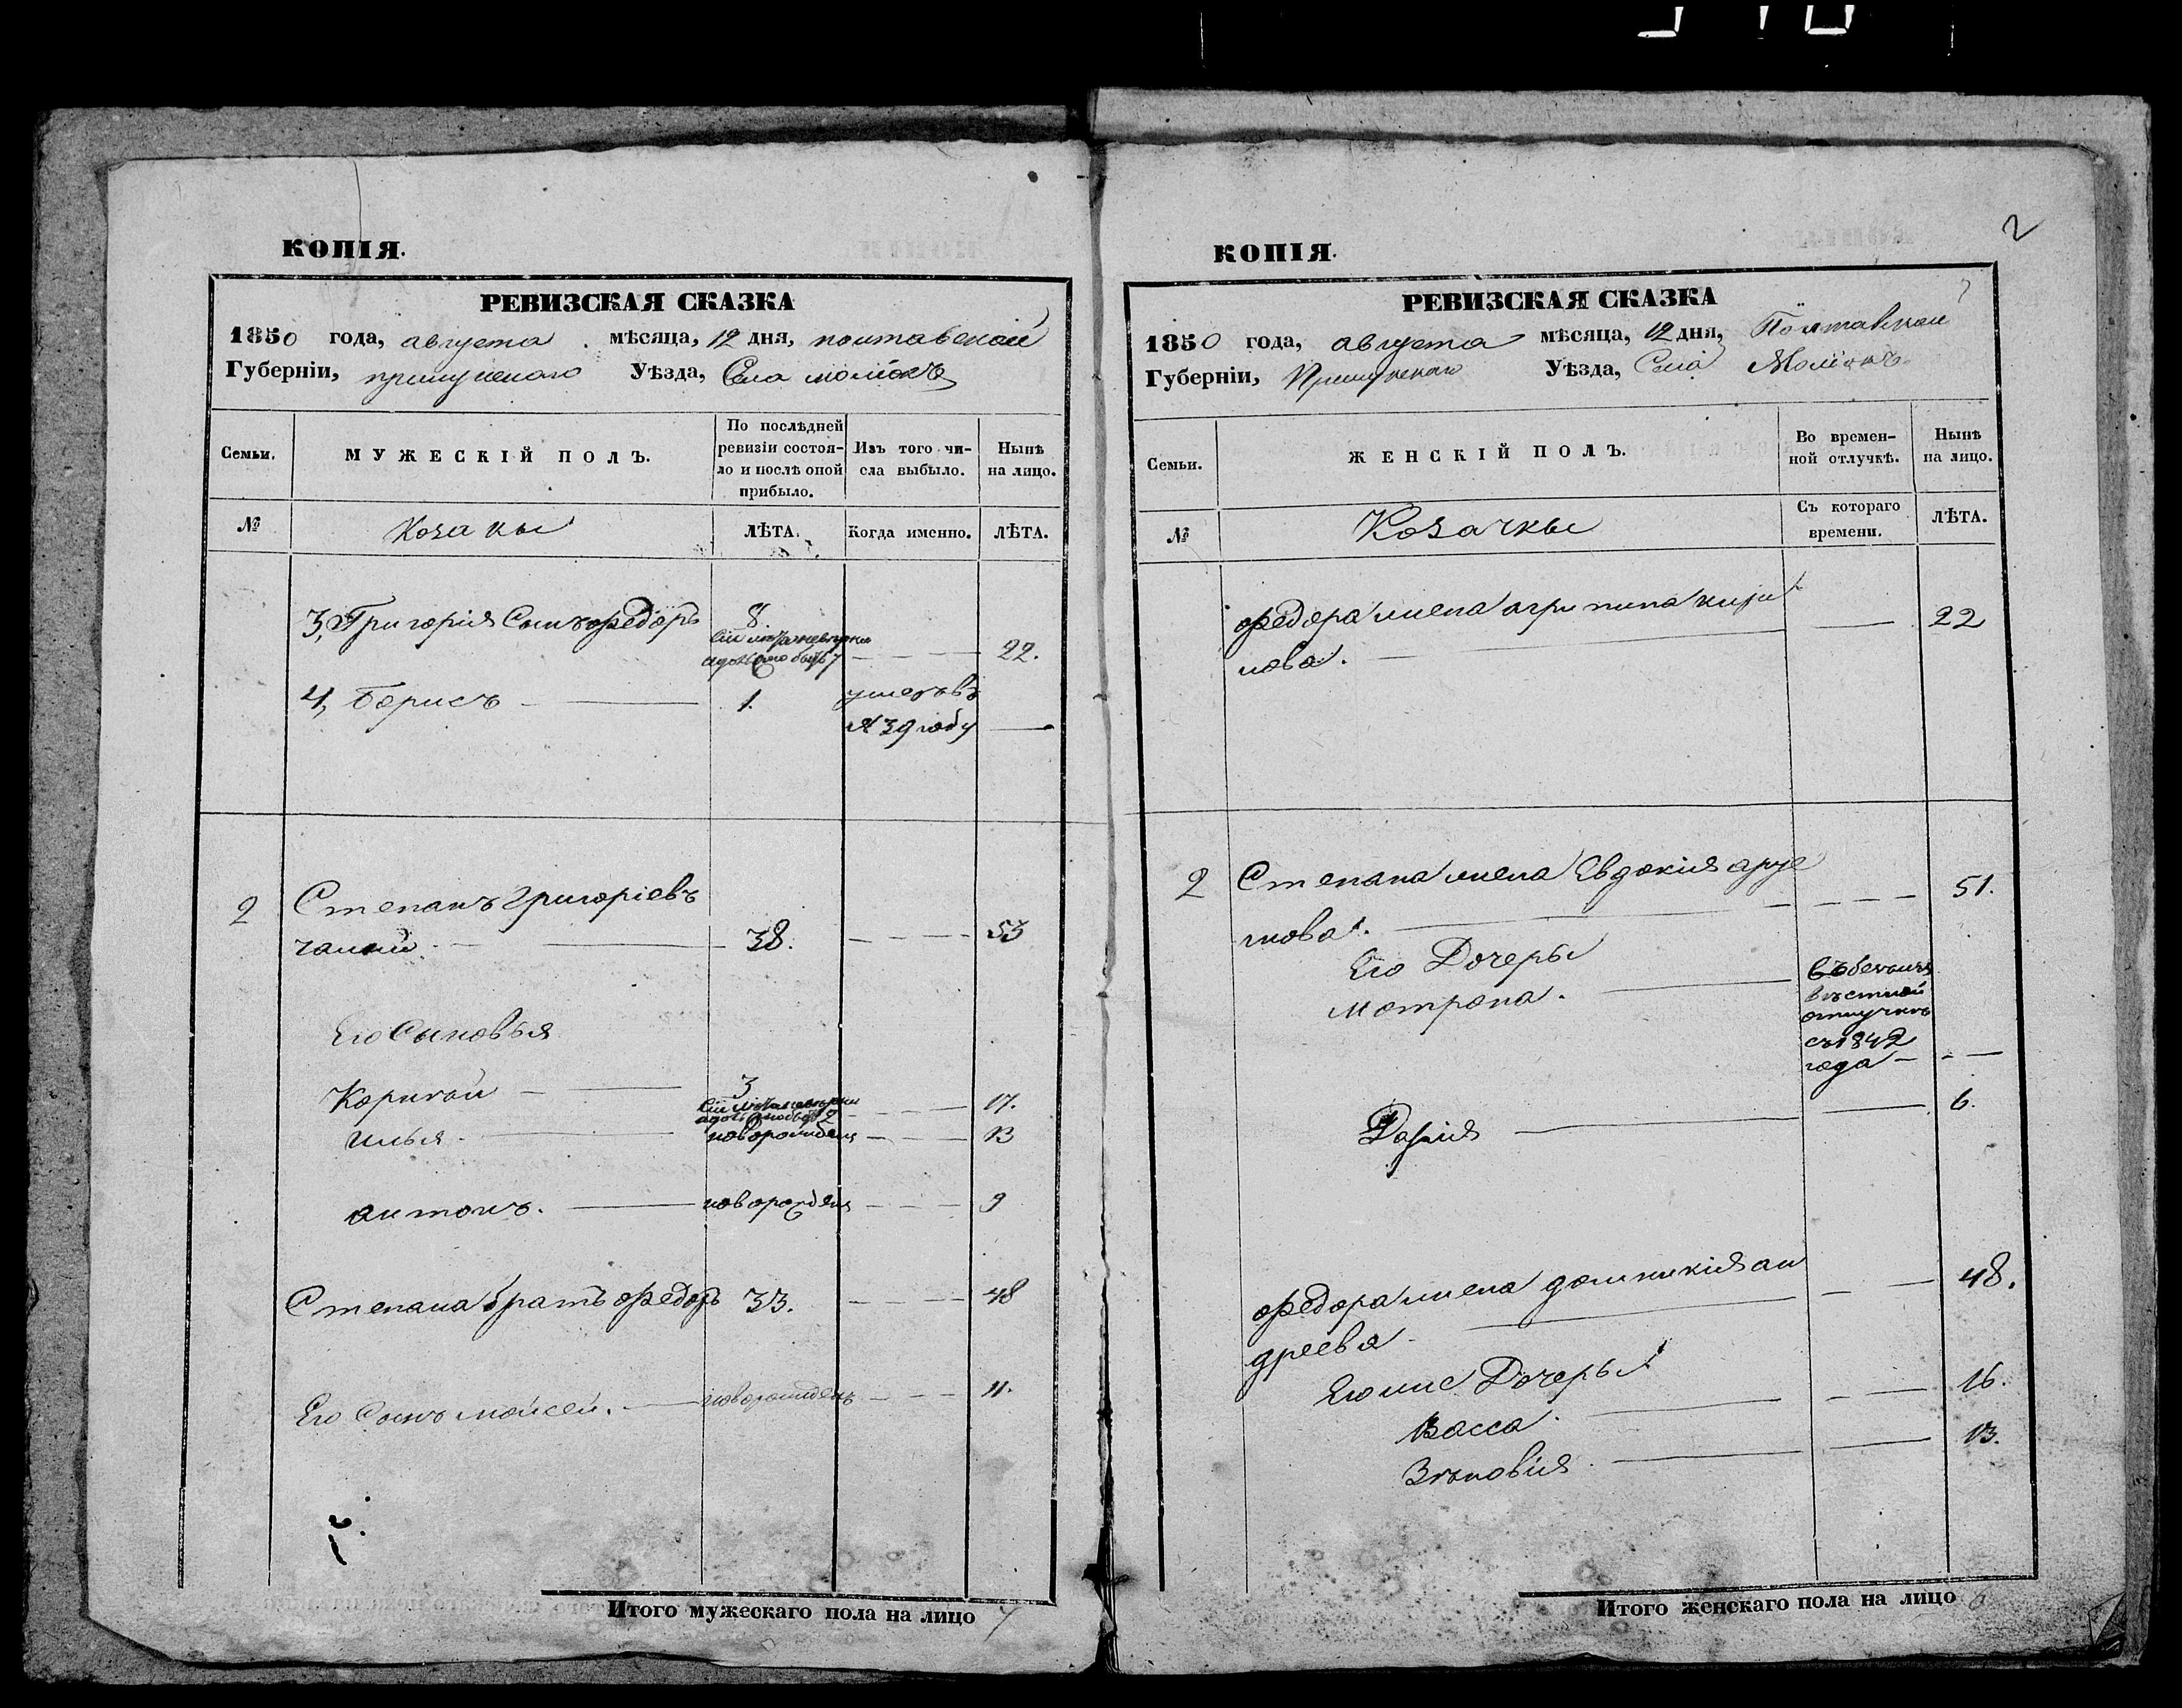 КОПІЯ.
РЕВИЗСКАЯ СКАЗКА
1850 года, августа мѣсяца, 12 дня, полтавской
Губерніи, прилуцкаго Уѣзда, Села
Семьи.
МУЖЕСКІЙ ПОЛЪ.
По послѣдней ревизіи состояло и послѣ оной прибыло.
Изъ того числа выбыло.
Нынѣ на лицо.
№
Козакы
ЛѢТА.
Когда именно.
ЛѢТА.
3, Григорія Сынъ федоръ 8. 22.
4, борисъ 1. умеръ въ
839 году
2 Степанъ григоріевъ
38. 53
Его Сыновья
3 17.
илья новорожденъ 13
антонъ. новорожденъ 9
Степана братъ федоръ 33. 48
Его Сынъ мойсей. новорожденъ 11.
Итого мужескаго пола на лицо 7
2
КОПІЯ.
РЕВИЗСКАЯ СКАЗКА
1850 года, августа мѣсяца, 12 дня, Полтавской
Губерніи, Прилуцкаго Уѣзда, Села
Семьи.
ЖЕНСКІЙ ПОЛЪ.
Во временной отлучкѣ.
Нынѣ на лицо.
№
Козачкы
Съ котораго времени.
ЛѢТА.
федора жена агрипина кири
лова. 22
2 Степана жена Евдокія
51.
Его Дочеры
мотрона.
отлучкѣ
съ 1842
года
Дарія 6.
федора жена домникія ан
дреева 48.
Его же Дочеры
Васса. 16.
Зѣновія 13.
Итого женскаго пола на лицо 6